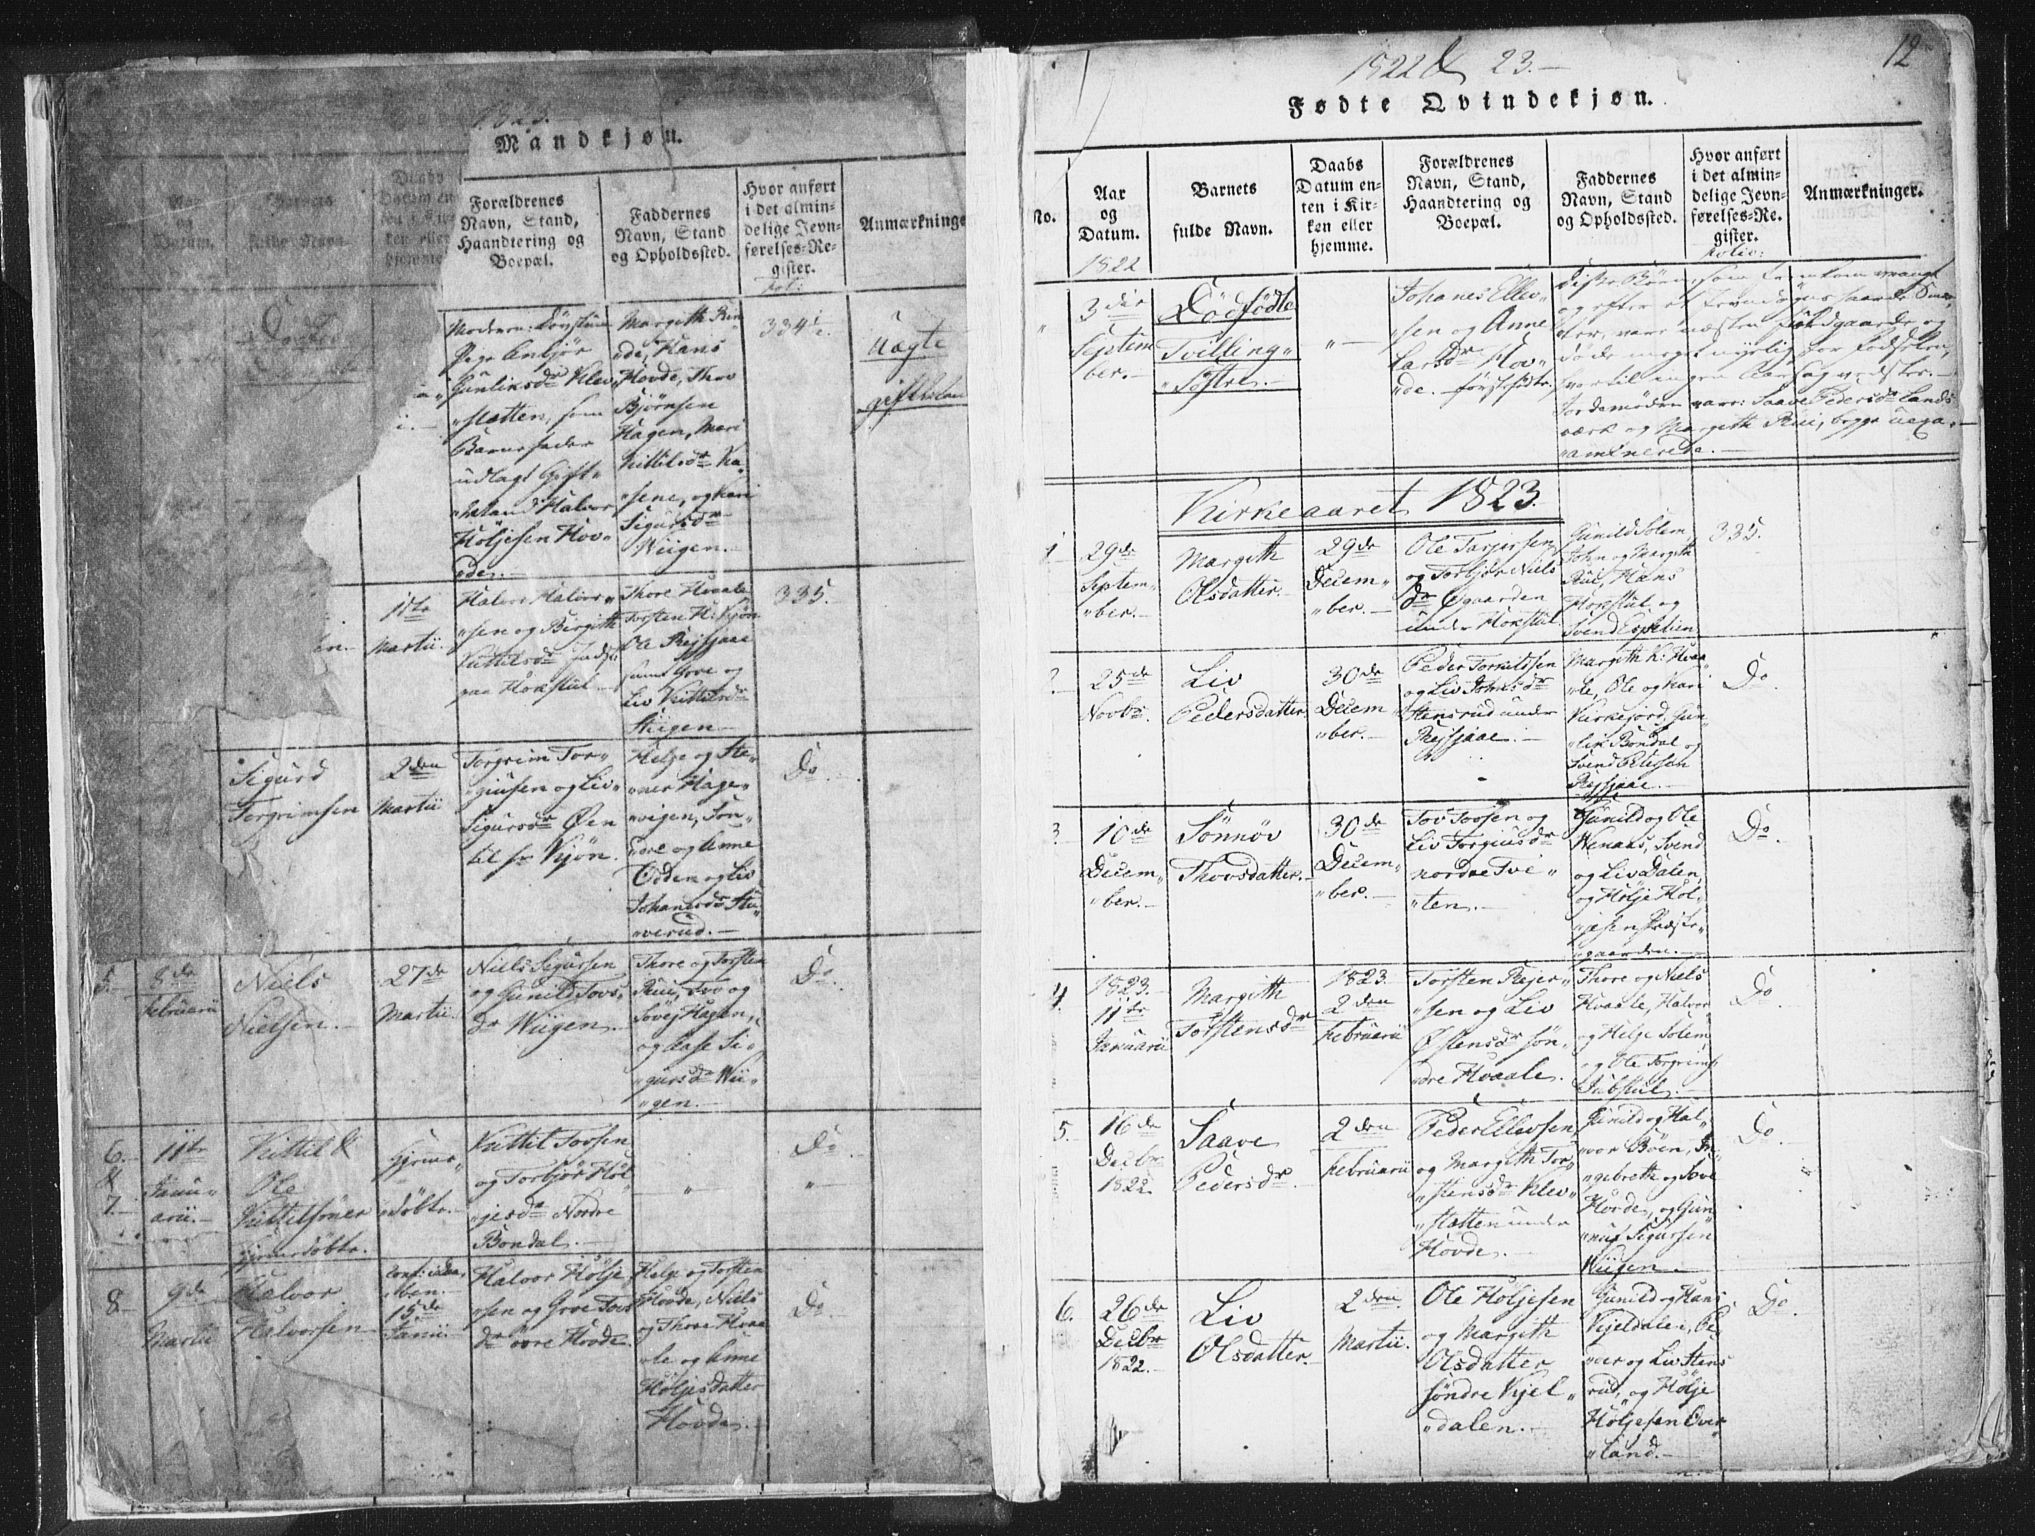 1823.
Mandkjøn.
Aar
og
Datum.
Barnets
fulde Navn.
Daabs
Datum en-
ten i Kir-
ken eller
hjemme.
Forældrenes
Navn, Stand,
Haandtering og
Boepæl.
Faddernes
Navn, Stand
og Opholdssted.
Hvor anført
i det almin-
delige Jevn-
førelses-Re-
gister.
Anmærkninge
Fol:
Pige Anbjør
Gunliksdr Klev„
„statten, som
Barnefader
udlagt Gift„
Halvor
Høljesen Hov„
„de.
Margith Rin„
„de, Hans
Hovde, Thov
Bjørnsen
Hagen, Mari
Kittilsdr Ka„
„sene, og Kari
Sigursdr
Wiigen.
334
Uægte
11te
Martii.
Halvor Halvor„
„sen og Birgith
Kittilsdr
paa Hokstul
Thore Hvaale,
Torsten H. Kjøn
Ole Rejsjaae
samt Groe og
Liv Kittilsdr
Wiigen
335.
Sigurd
Torgrimsen
2den
Martii
Torgrim Tor„
„giusen og Liv„
Sigursdr Øen
til
Kjøn.
Helge og Ste„
„ner Hage„
„vigen, Son„
„dre og Anne
Odden og Liv
Johannesdr Stu„
„verud.
Do
5.
8de
Februarii
Niels
Nielsen.
27de
Martii.
Niels Sigursen
og Gunild Tovs„
dr Wiigen.
Thore og Torsten
Rui, Tov og
Hagen,
og Aase Si„
„gursdr Wii„
„gen.
Do
6.
&
7.
11te
Janu„
„arii.
Kittil &
Ole
Kittilsøner
hjemmedøbte.
hjem„
„døbte.
Kittil Tovsen
og Torbjør Høl„
„jesdr Nordre
Bondal.
„
Do
„
8.
9de
Martii
Halvor
Halvorsen
15de
Junii
Halvor Hølje„
„sen og Groe Tovs
dr øvre Hovde.
Helge og Torsten
Hovde, Niels
og Thore Hvaa„
„le og Anne
Høljesdatter
Hovde.
Do

12
1822 & 23.
Fødte Qvindekjøn.
No.
Aar
og
Datum.
Barnets
fulde Navn.
Daabs
Datum en-
ten i Kir-
ken eller
hjemme.
Forældrenes
Navn, Stand,
Haandtering og
Boepæl.
Faddernes
Navn, Stand
og Opholdssted.
Hvor anført
i det almin-
delige Jevn-
førelses-Re-
gister.
Anmærkninger.
1822
Folio:
„
3die
Septem
ber.
Dødfødte
Tvilling„
„Søstre.
„
Johanes Ellev„
„sen og Anne
Larsdr Hov„
„de.
Disse Børn, som
og efter
vare næsten
døde meget
Jordemødre vare: Saave Pedersdr Lands
værk og Margith Rui, begge uexa„
„aminerede.
Kirkeaaret 1823.
1
29de
Septem„
„ber.
Margith
Olsdatter.
29de
Decem„
„ber.
Ole Tarjersen
og Torbjør Niels
dr Øgaarden
under Hokstul
Gunild Solem,
John og Margith
Rui, Hans
Hokstul og
Svend
335.
2
25de
Novbr.
Liv
Pedersdatter
30de
Decem
„ber.
Peder Torkildsen
og Liv Johnsdr
Stensrud under
Rejsjaae.
Margith K: Hvaa„
„le, Ole og Kari
Kirkejord, Gun„
„lik Bondal og
Svend
Rejsjaae.
Do
3
10de
Decem„
„ber.
Sønnøv
Thovsdatter.
30de
Decem„
„ber.
Tov Tovsen og
Liv Torgiusdr
nordre Tve„
„ten.
Gunild og Ole
Wenaas, Svend
og Liv Dalen,
og Hølje Høl„
„jesen Præste„
„gaarden.
Do
4.
1823.
11te
Januarii
Margith
Torstensdr
1823.
2den
Februarii
Torsten Rejer„
„sen og Liv
Østensdr Søn„
„dre Hvaale.
Thore og Niels
Hvaale, Halvor
og Helge Solem
og Ole Torgrims
Dubstul.
Do
5.
16de
Decbr
1822.
Saave
Pedersdr.
2den
Februarii
Peder Ellevsen
og Margith Tor„
„stensdr Klev„
„statten under
Hovde.
Gunild og Hal„
„vor Bøen, In„
„gebreth og Tove
Hovde, og Gun„
„nuf Sigursen
Wiigen.
Do
6.
26de
Decbr
1822.
Liv
Olsdatter.
2den
Martii.
Ole Høljesen
og Margith
Olsdatter
søndre Kjel„
„dalen.
Gunild og Hans
Kjeldalen, Pe„
„der og Liv Stens
rud, og Hølje
Høljesen Over„
„land.
Do.